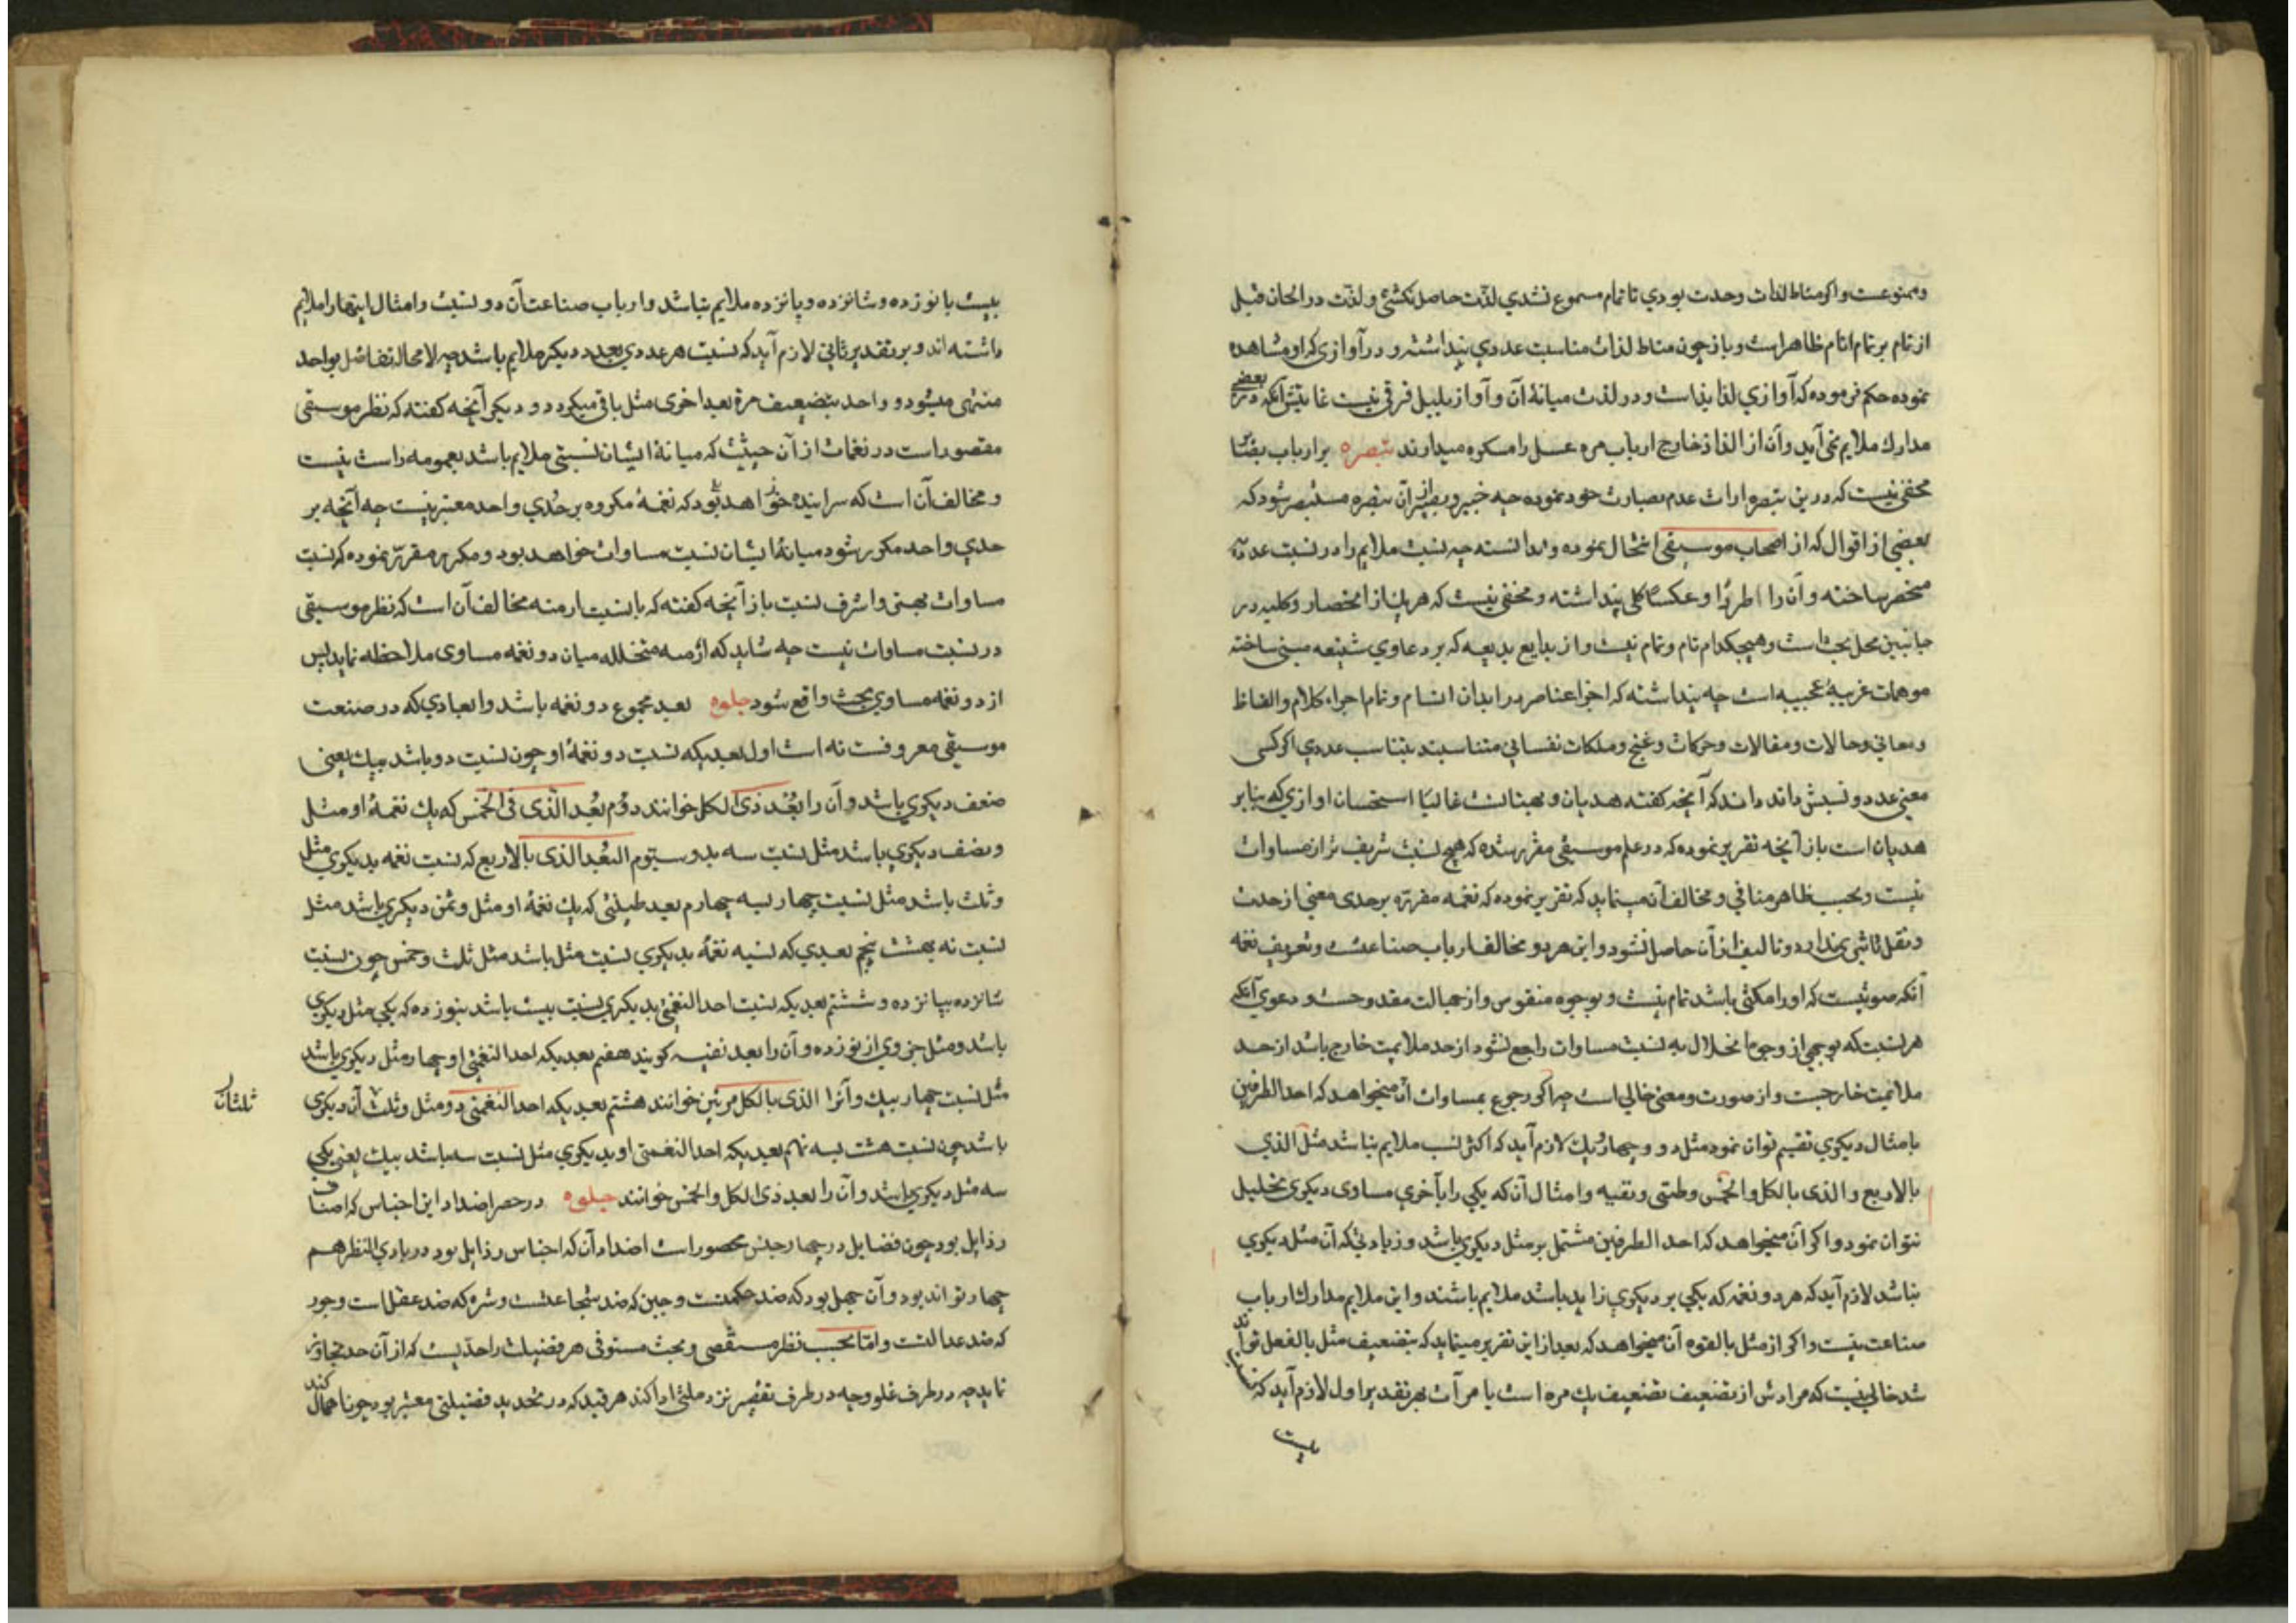 وممنوعست واکر مناط لذات وحدت بودی تا تمام مسموع نشدی لذت حاصل نکشتی ولذت در الحان قبل
از تمام بر تمام انام ظاهر است وباز چون مناط لذات مناسبت عددی پنداشته و در آوازی که او مشاهده
نموده حکم فرموده که آوازی لذا یذاست ودر لذت میانهٔ آن وآواز بلبل فرقی نیست غایتش آنکه در بعضی
مدارك ملایم نمی آید وآن از الذاذ خارج ارباب مره عسل را مکروه میدارند تبصره بر ارباب
مخفی نیست که درین تبصره ارات عدم بصارت خود نموده چه خبیر وبصیر از آن تبصره مستبصر شود که
بعضی از اقوال که از اصحاب موسیقی انتحال نموده وندانسته چه نسبت ملایم را در نسبت عددیه
منحصر ساخته وآن را اطردًا وعکسًا کلی پنداشته ومخفی نیست که هر یك از انحصار وکلیه در
جانبین محل بحث است وهیچکدام تام وتمام نیست واز بدایع بدیعه که بر دعاوی شنیعه مبنی ساخته
موهمات غریبهٔ عجیبه است چه پنداشته که اجزا عناصر در ابدان انسام وتمام اجزاء کلام والفاظ
ومعانی وحالات ومقالات وحرکات وغنج وملکات نفسانی متناسبند بتناسب عددی اکر کسی
معنی عدد ونسبتش داند داند که آنچه کفته هذیان وبهتانست غالبًا استحسان اوازی که بنابر
هذیان است باز آنچه تقریر نموده که در علم موسیقی مقرر شده که هیچ نسبت شریف تر از مساوات
نیست وبحسب ظاهر منافی ومخالف آن مینماید که تقریر نموده که نغمه مقرره بر حدی معین از حدت
وثقل تاثیر ندارد وتالیف از آن حاصل نشود واین هر دو مخالف ارباب صناعتست وتعریف نغمه
آنکه صوتیست که او را مکثی باشد تمام نیست وبوجوه منقوض واز جهالت مقدوحست ودعوی آنکه
هر نسبت که بوجهی از وجوه انحلال به نسبت مساوات راجع نشود از حد ملایمت خارج باشد از حد
ملایمت خارجست واز صورت ومعنی خالی است چه اکر رجوع بمساوات آن میخواهد که احد الطرفین
بامثال دیکری تقسیم توان نمود مثل دو وچهار ویك لازم آید که اکثر نسب ملایم نباشد مثل الذی
بالاربع والذی بالکل والخمس وطنینی وبقیه وامثال آن که یکی را بآخری مساوی دیکری تحلیل
نتوان نمود واکر آن میخواهد که احد الطرفین مشتمل بر مثل دیکری باشد وزیادتی که آن مثل دیکری
نباشد لازم آید که هر دو نغمه که یکی بر دیکری زاید باشد ملایم باشند واین ملایم مدارك ارباب
صناعت نیست واکر از مثل بالقوه آن میخواهد که بعد از این تقریر مینماید که بتضعیف مثل بالفعل تواند
شد خالی نیست که مرادش از تضعیف تضعیف یك مره است یا مرات بر تقدیر اول لازم آید که نسبت
بیست
بیست با نوزده وشانزده وپانزده ملایم نباشد وارباب صناعت آن دو نسبت وامثال اینها را ملایم
داشته اند وبر تقدیر ثانی لازم آید که نسبت هر عددی بعدد دیکر ملایم باشد چه لامحاله تفاضل بواحد
منتهی میشود و واحد بتضعیف مرة بعد اخری مثل باقی میکردد ودیکر آنچه کفته که نظر موسیقی
مقصور است در نغمات از آن حیثیت که میانهٔ ایشان نسبتی ملایم باشد بعمومه راست نیست
ومخالف آن است که سراینده خواهد بود که نغمهٔ مکروه بر حدی واحد معتبر نیست چه آنچه بر
حدی واحد مکرر شود میانهٔ ایشان نسبت مساوات خواهد بود ومکرر مقرر نموده که نسبت
مساوات بهین واشرف نسبت باز آنچه کفته که با نسبت ازمنه مخالف آن است که نظر موسیقی
در نسبت مساوات نیست چه شاید که ازمنه متخلله میان دو نغمه مساوی ملاحظه نماید پس
از دو نغمه مساوی بحث واقع شود جلوه بعد مجموع دو نغمه باشد وابعادی که در صنعت
موسیقی معروفست نه است اول بعدیکه نسبت دو نغمهٔ او چون نسبت دو باشد بیك یعنی
ضعف دیکری باشد وآن را بُعْد ذی الکل خوانند دوُم بُعُد الّذی فی الخمس که یك نغمهٔ او مثل
ونصف دیکری باشد مثل نسبت سه بدو سیّوم البُعد الذی بالاربع که نسبت نغمه بدیکری مثل
وثلث باشد مثل نسبت چهار بسه چهارم بعد طنینی که یك نغمهٔ او مثل وثمن دیکری باشد مثل
نسبت نه بهشت پنجم بعدی که نسبه نغمهٔ بدیکری نسبت مثل باشد مثل ثلث وخمس چون نسبت
شانزده بپانزده وششم بعدیکه نسبت احد النغمتین بدیکری نسبت بیست باشد بنوزده که یکی مثل دیکری
باشد ومثل جزوی از نوزده وآن را بعد بقیه کویند هفتم بعدیکه احد النغمتین او چهار مثل دیکری باشد
مثل نسبت چهار بیك وآنرا الذی بالکل مرتین خوانند هشتم بعدیکه احد النغمتین دو مثل وثلث آن دیکری
ثلثان
باشد چون نسبت هشت بسه نهم بعدیکه احد النغمتین او بدیکری مثل نسبت سه باشد بیك یعنی یکی
سه مثل دیکری باشد وآن را بعد ذی الکل والخمس خوانند جلوه در حصر اضداد این اجناس که اصناف
رذایل بود چون فضایل در چهار جنس محصور است اضداد آن که اجناس رذایل بود در بادی النظر هم
چهار تواند بود وآن جهل بود که ضد حکمتست وجبن که ضد شجاعتست وشره که ضد عفت است وجور
که ضد عدالتست وامّا بحسب نظر مستقصی وبحث مستوفی هر فضیلت را حدّیست که از آن حد تجاوز
نماید چه در طرف غلو وچه در طرف تقصیر نزد ملتی ادا کند هر قید که در تحدید فضیلتی معتبر بود چون اهمال کند